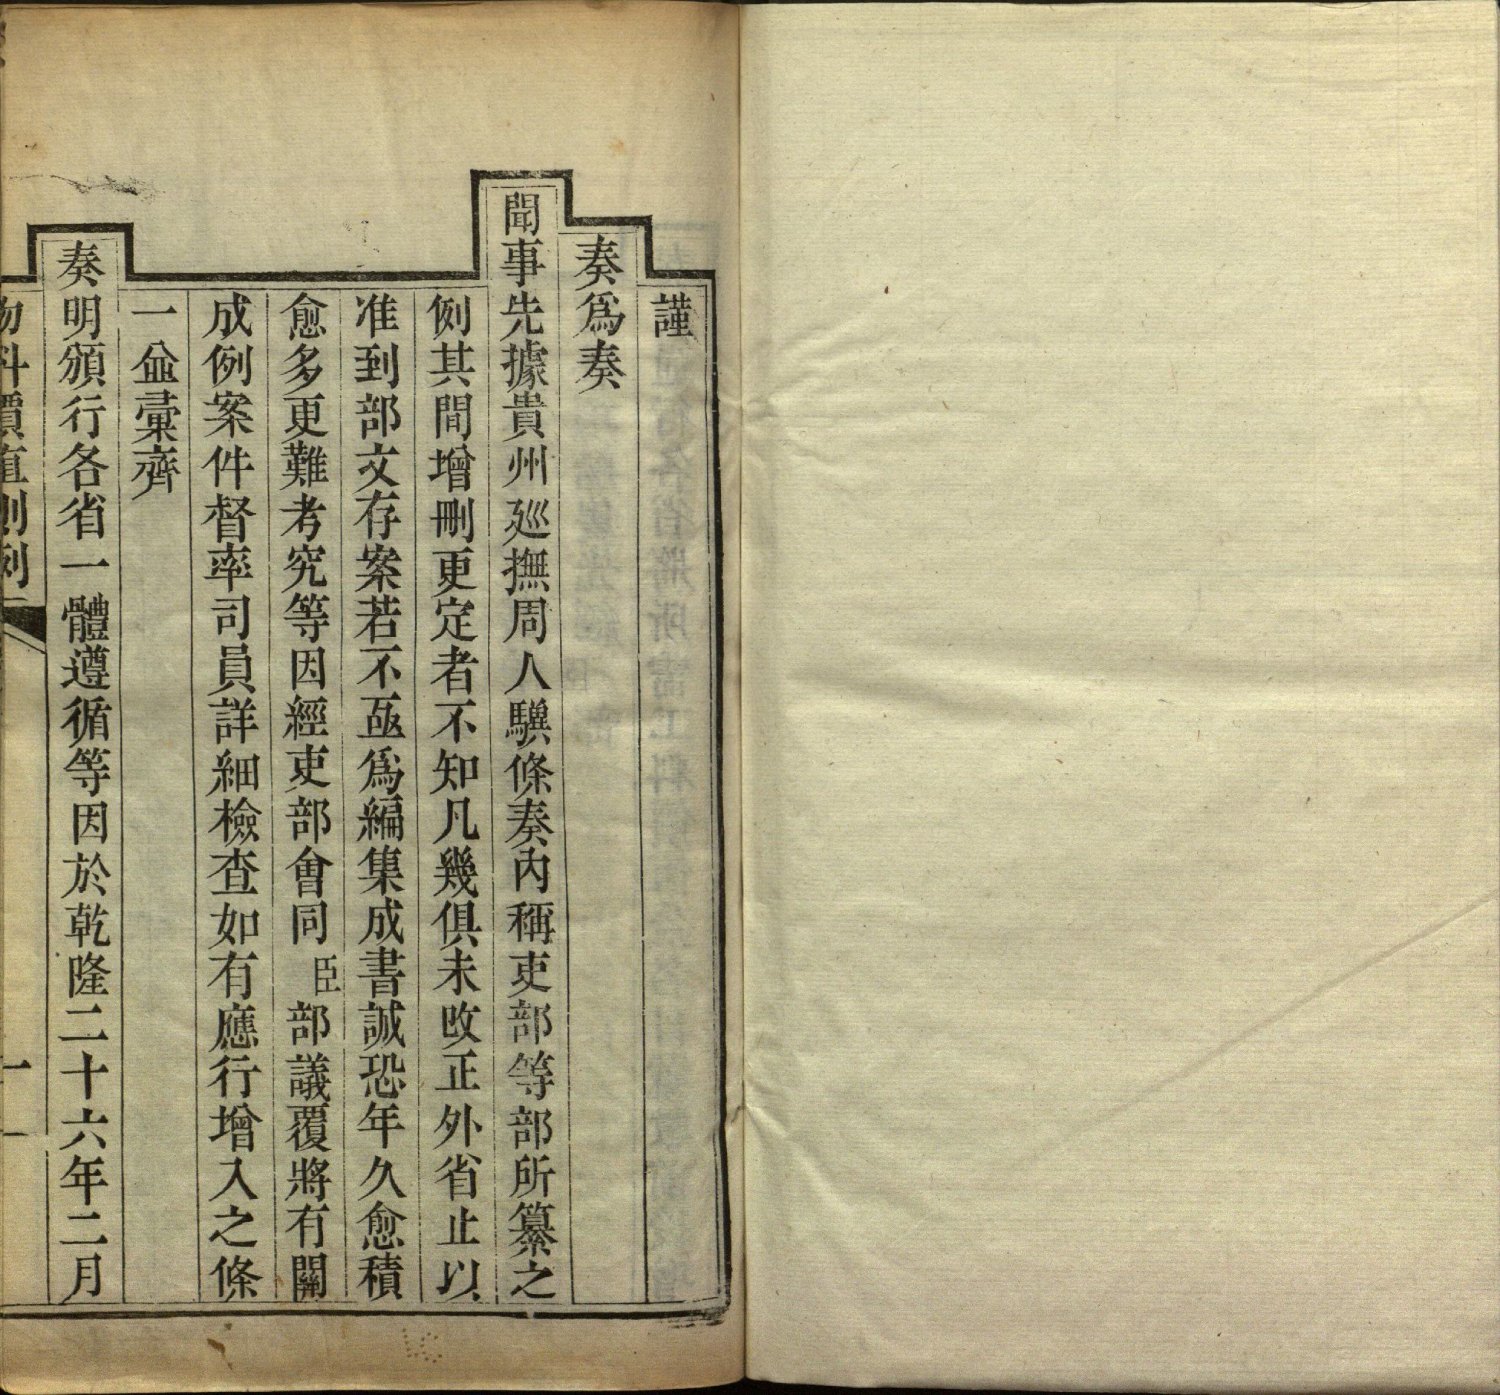 謹
奏爲奏
聞事先據貴州廵撫周人驥條奏內稱吏部等部所纂之
例其間增刪更定者不知凡幾俱未改正外省止以
准到部文存案若不亟爲編集成書誠恐年久愈積
愈多更難考究等因經吏部會同臣部議覆將有關
成例案件督率司員詳細檢查如有應行增入之條
一並彙齊
奏明頒行各省一體遵循等因於乾隆二十六年二月
物料價直則例
一